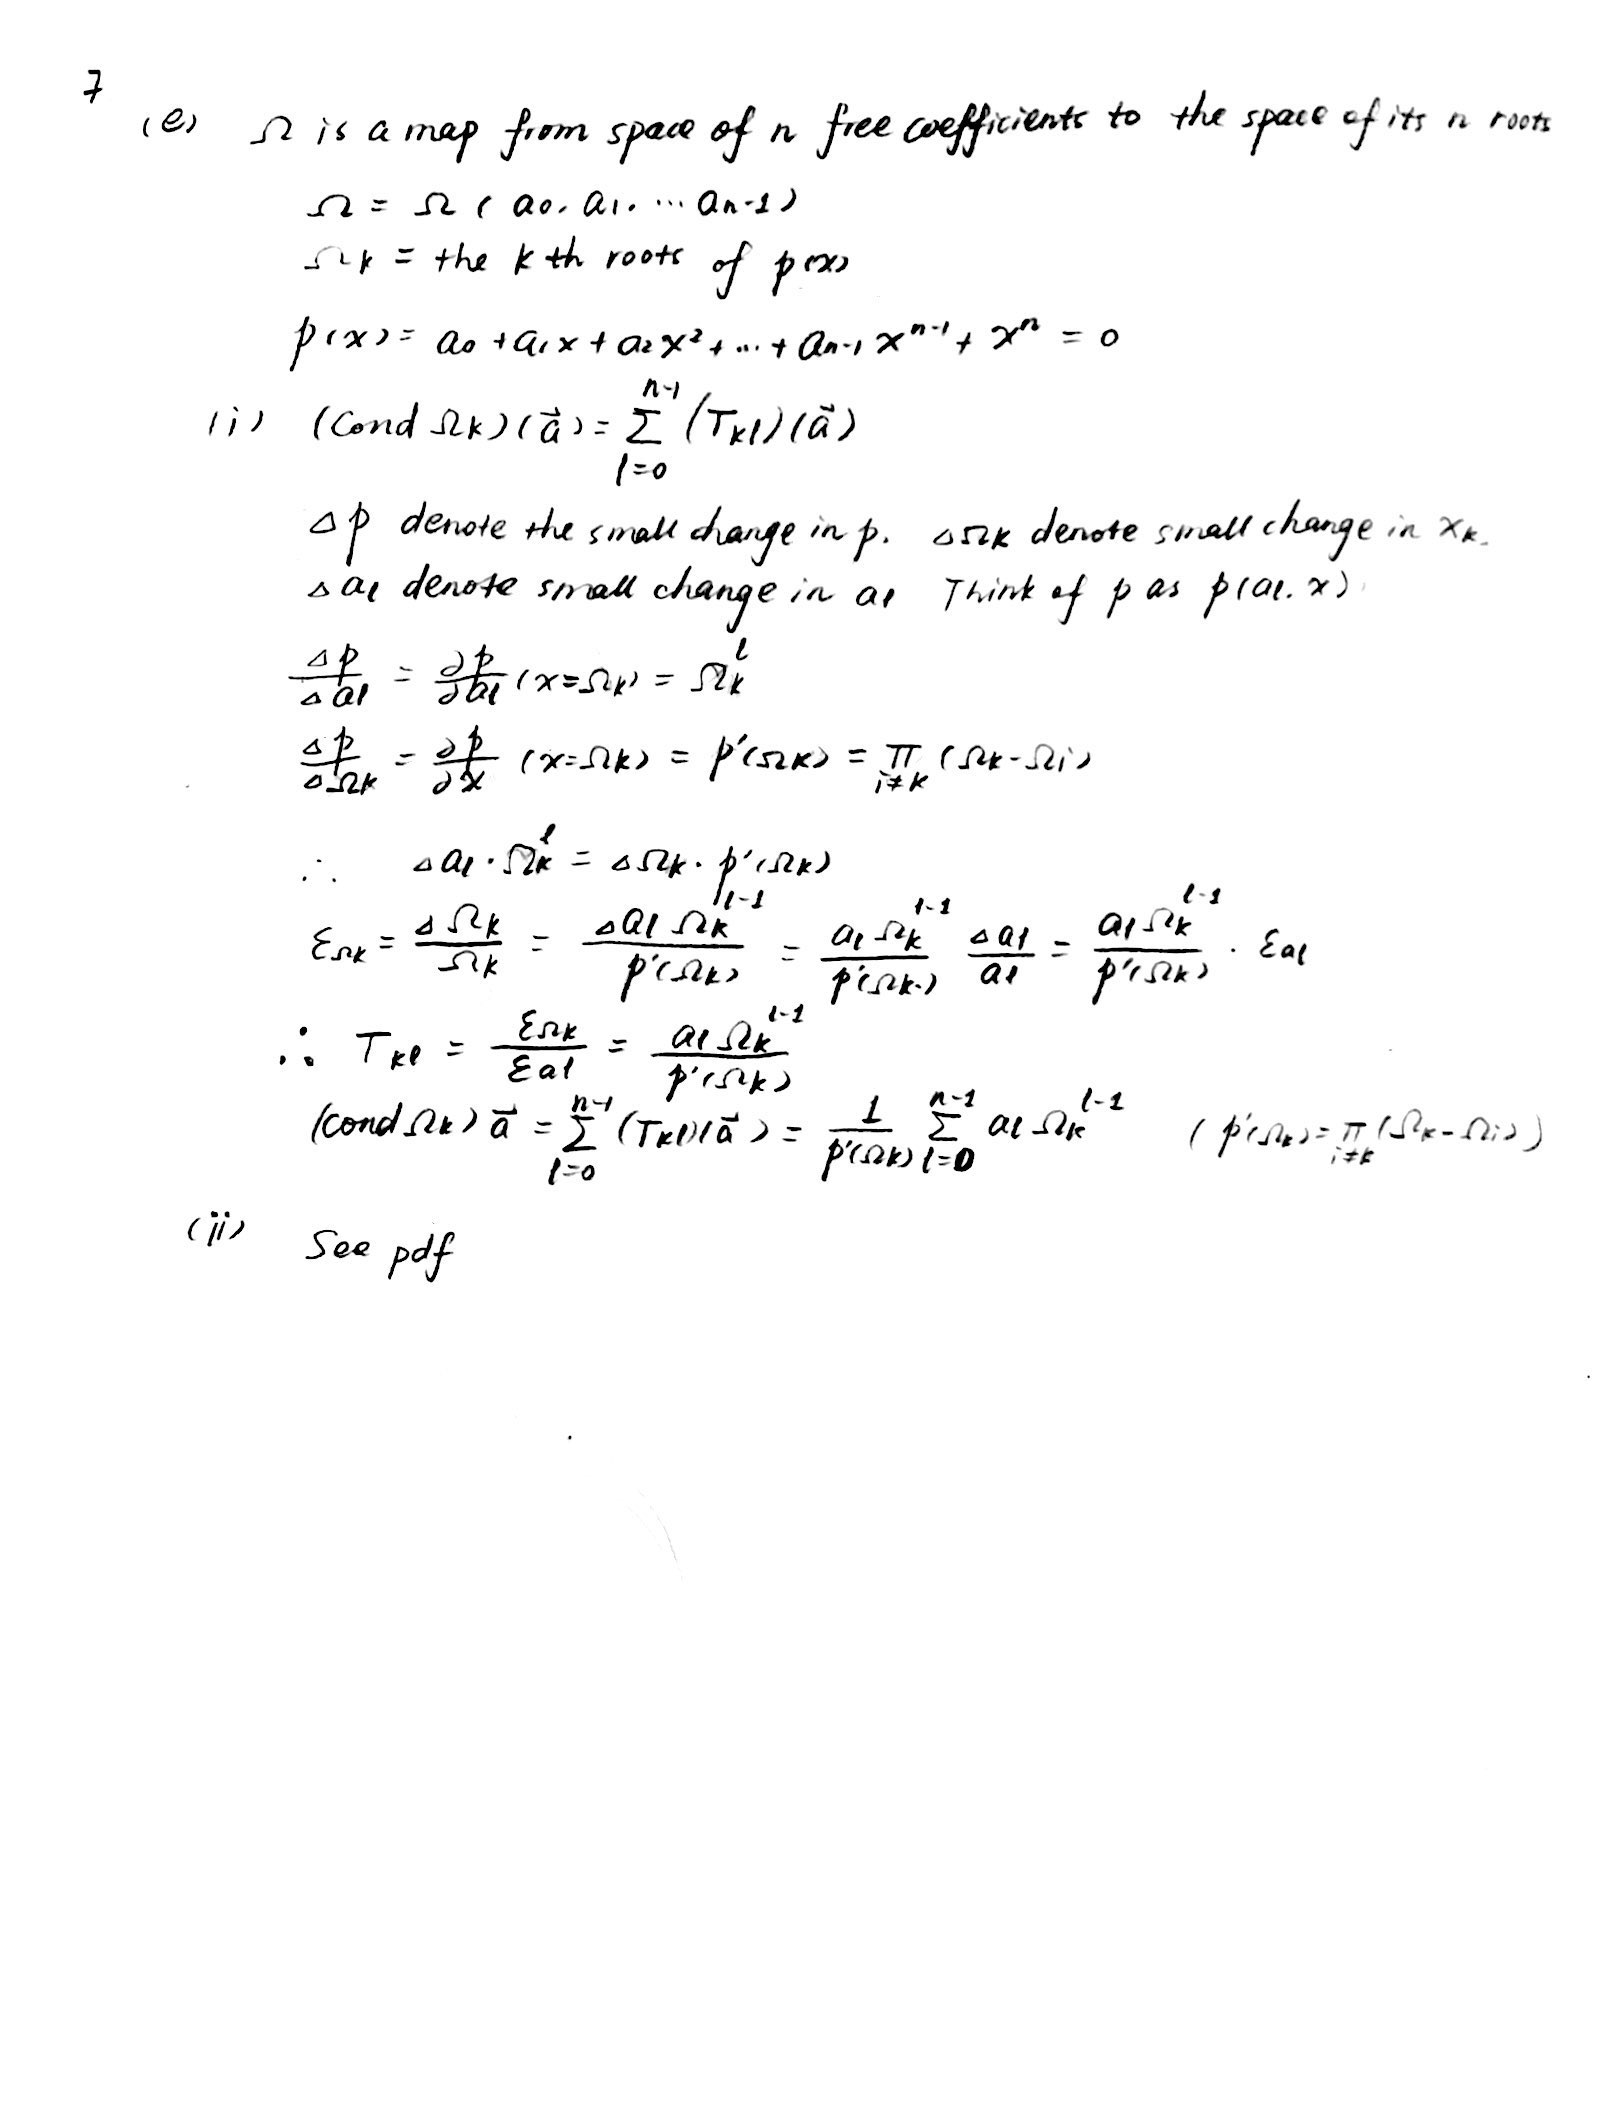 7
(e) Ω is a map from space of n free coefficients to the space of its n roots
Ω = Ω ( a0, a1, ... an-1)
Ωk = the k th roots of p(x)
p(x) = a0 + a1x + a2x² + ... + an-1 xⁿ⁻¹ + xⁿ = 0
(i) (Cond Ωk)(a⃗) = Σ_{l=0}^{n-1} (Tkl)(a⃗)
Δp denote the small change in p. ΔΩk denote small change in xk.
Δal denote small change in al Think of p as p(al, x).
Δp/Δal = ∂p/∂al (x=Ωk) = Ωk^l
Δp/ΔΩk = ∂p/∂x (x=Ωk) = p'(Ωk) = π_{i≠k} (Ωk-Ωi)
∴ Δal · Ωk^l = ΔΩk · p'(Ωk)
εΩk = ΔΩk/Ωk = Δal Ωk^{l-1}/p'(Ωk) = al Ωk^{l-1}/p'(Ωk) Δal/al = al Ωk^{l-1}/p'(Ωk) · εal
∴ Tkl = εΩk/εal = al Ωk^{l-1}/p'(Ωk)
(cond Ωk) a⃗ = Σ_{l=0}^{n-1} (Tkl)(a⃗) = 1/p'(Ωk) Σ_{l=0}^{n-1} al Ωk^{l-1} ( p'(Ωk) = π_{i≠k} (Ωk-Ωi))
(ii) See pdf